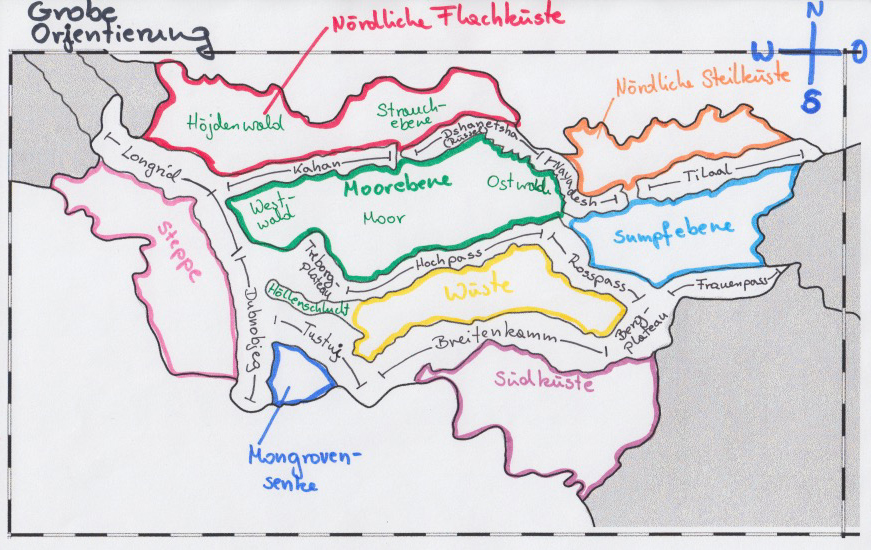 Grobe
Orientierung
Nördliche Flachküste
N
W
O
S
Nördliche Steilküste
Höjdenwald
Strauch-
ebene
Dshanetsha
(Rüssel)
Longrid
Kahan
Navadesh
Tilaal
Moorebene
Ostwald
West-
wald
Moor
Steppe
Sumpfebene
Treborg-
plateau
Hochpass
Rosspass
Frauenpass
Höllenschlucht
Wüste
Dubnobjeg
Tustuj
Breitenkamm
Berg-
plateau
Südküste
Mongroven-
senke